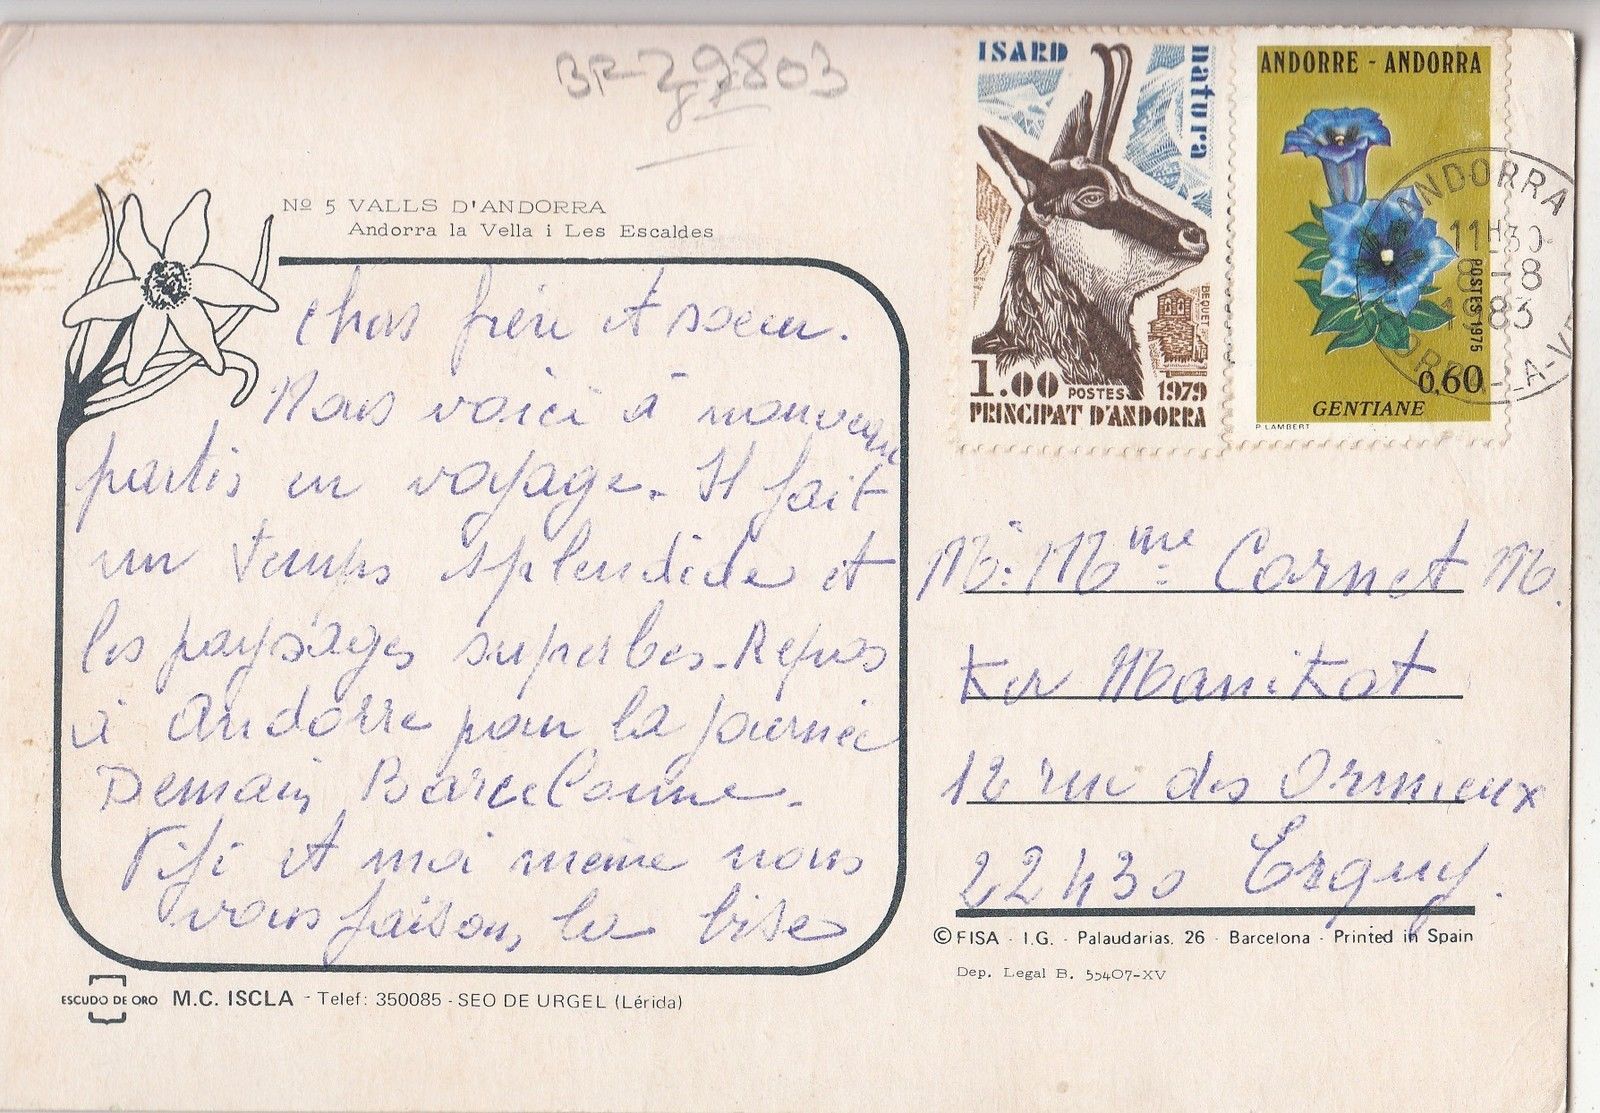 BP 29803
ISARD
natura
BEQUET
1.00 POSTES 1979
PRINCIPAT D'ANDORRA
ANDORRE - ANDORRA
POSTES 1975
0,60
GENTIANE
P LAMBERT
ANDORRA
11H30
8 - 8
1983
Nº 5 VALLS D'ANDORRA
Andorra la Vella i Les Escaldes
Chers frère et soeur.
Nous voici à nouveau
partis en voyage. Il fait
un temps splendide et
les paysages superbes. Repos
à Andorre pour la journée
Demain Barcelonne.
Fifi et moi même nous
vous faisons la bise
M. Mme Cornet M.
Ker Manikat
12 rue des Ormieux
22430 Erquy.
© FISA - I.G. - Palaudarias, 26 - Barcelona - Printed in Spain
Dep. Legal B. 55407-XV
ESCUDO DE ORO M.C. ISCLA - Telef: 350085 - SEO DE URGEL (Lérida)